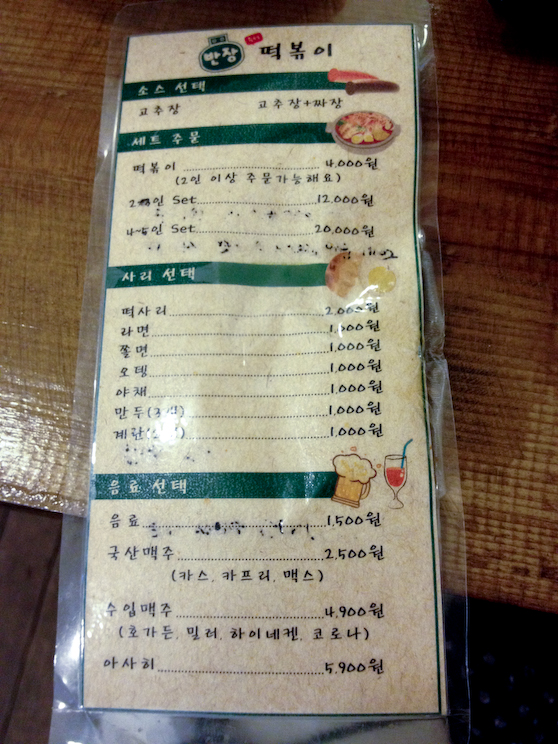 반장 떡볶이
소스 선택
고추장 고추장+짜장
세트 주문
떡볶이 4,000원
(2인 이상 주문가능해요)
인 Set 12,000원
인 Set 20,000원
사리 선택
떡사리 2,000원
라면 1,000원
쫄면 1,000원
오뎅 1,000원
야채 1,000원
만두 1,000원
계란 1,000원
음료 선택
음료 1,500원
국산맥주 2,500원
(카스, 카프리, 맥스)
수입맥주 4,900원
(호가든, 밀러, 하이네켄, 코로나)
아사히 5,900원